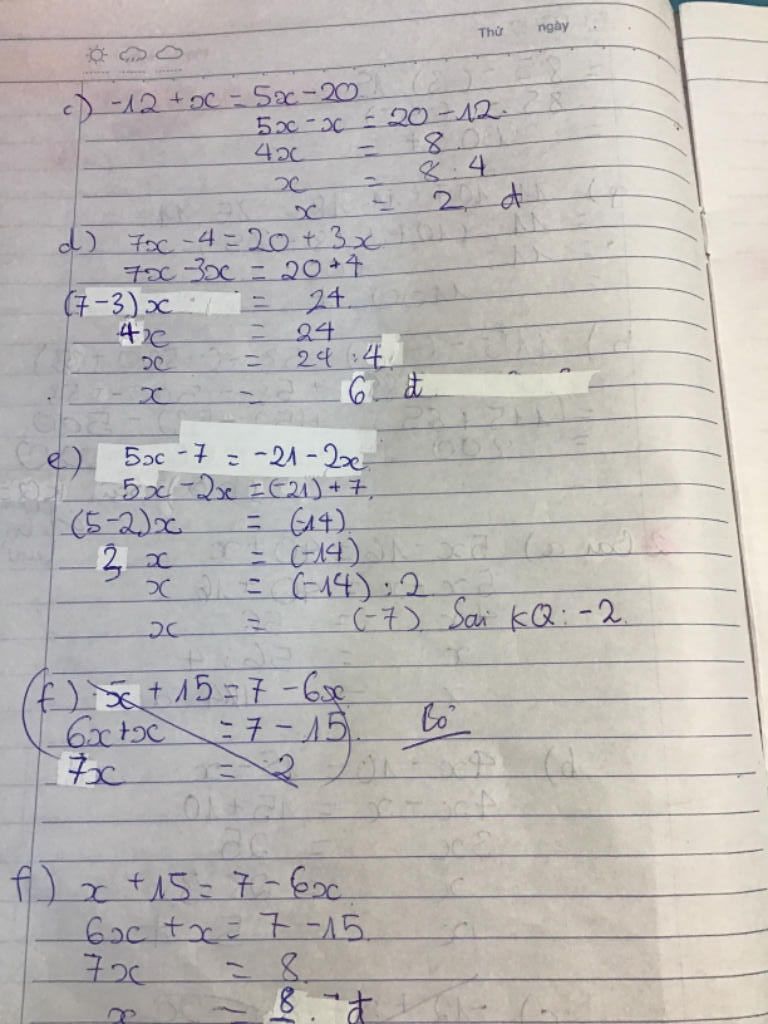 Thứ ngày
c) -12 + x = 5x - 20
5x - x = 20 - 12.
4x = 8
x = 8 : 4
x = 2 đ
d) 7x - 4 = 20 + 3x
7x - 3x = 20 + 4
(7 - 3) x = 24
4x = 24
x = 24 : 4
x = 6 đ
e) 5x - 7 = -21 - 2x
5x - 2x = (-21) + 7
(5 - 2)x = (-14)
3 x = (-14)
x = (-14) : 2
x = (-7) Sai KQ: -2
f) x + 15 = 7 - 6x
6x + x = 7 - 15 Bỏ
7x = -2
f) x + 15 = 7 - 6x
6x + x = 7 - 15
7x = 8
x = 8 đ